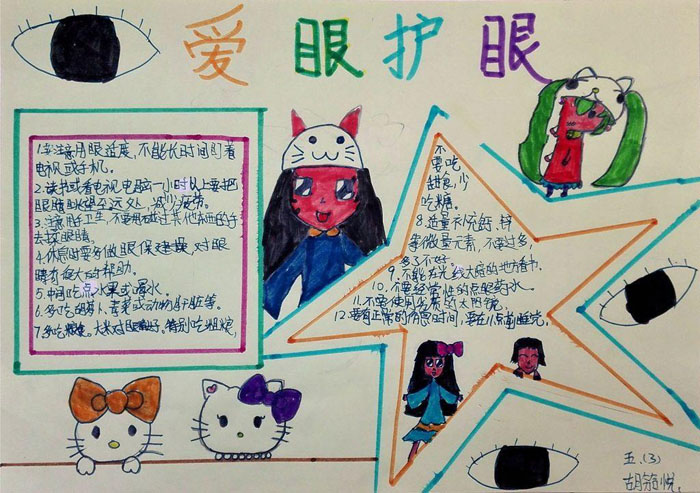 爱眼护眼
1.要注意用眼适度,不能长时间盯着
电视或手机。
2.读书或看电视电脑一小时以上要把
眼睛眺望至远处,减少疲劳。
3.注意用手卫生,不要用碰过其他东西的手
去揉眼睛。
4.休息时要多做眼保健操,对眼
睛有极大的帮助。
5.中间吃点水果或喝水。
6.多吃胡萝卜、青菜或动物肝脏等。
7.多吃粗粮。大米对眼睛好,特别吃粗粮,
不
要吃
甜食,少
吃糖。
8.适量补充钙、锌
等微量元素,不要过多,
多了不好。
9.不能在光线太暗的地方看书。
10.不要经常性的点眼药水。
11.不要使用劣质的太阳镜。
12.要有正常的作息时间,要在八点前睡觉。
五.(3)
胡
悦。